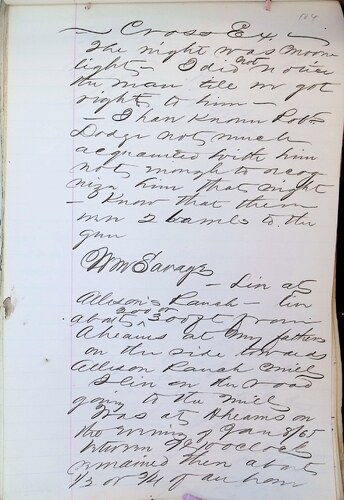 104
Cross Ex.
The night was Moon
light – I did not notice
the man till we got
right to him –
– I have known Robt
Dodge not much
acquainted with him
not enough to recog
nize him that night
– I know that there
were 2 barrels to the
gun
Wm Savage
– Live at
Allison's Ranch – live
about 200 or 300 ft from
Ahearns at my fathers
on the side towards
Allison Ranch Mill
I live on the road
going to the Mill
Was at Ahearns on
the evening of Jany 8/65
between 9 & 10 oclock
remained there about
1/3 or 3/4 of an hour